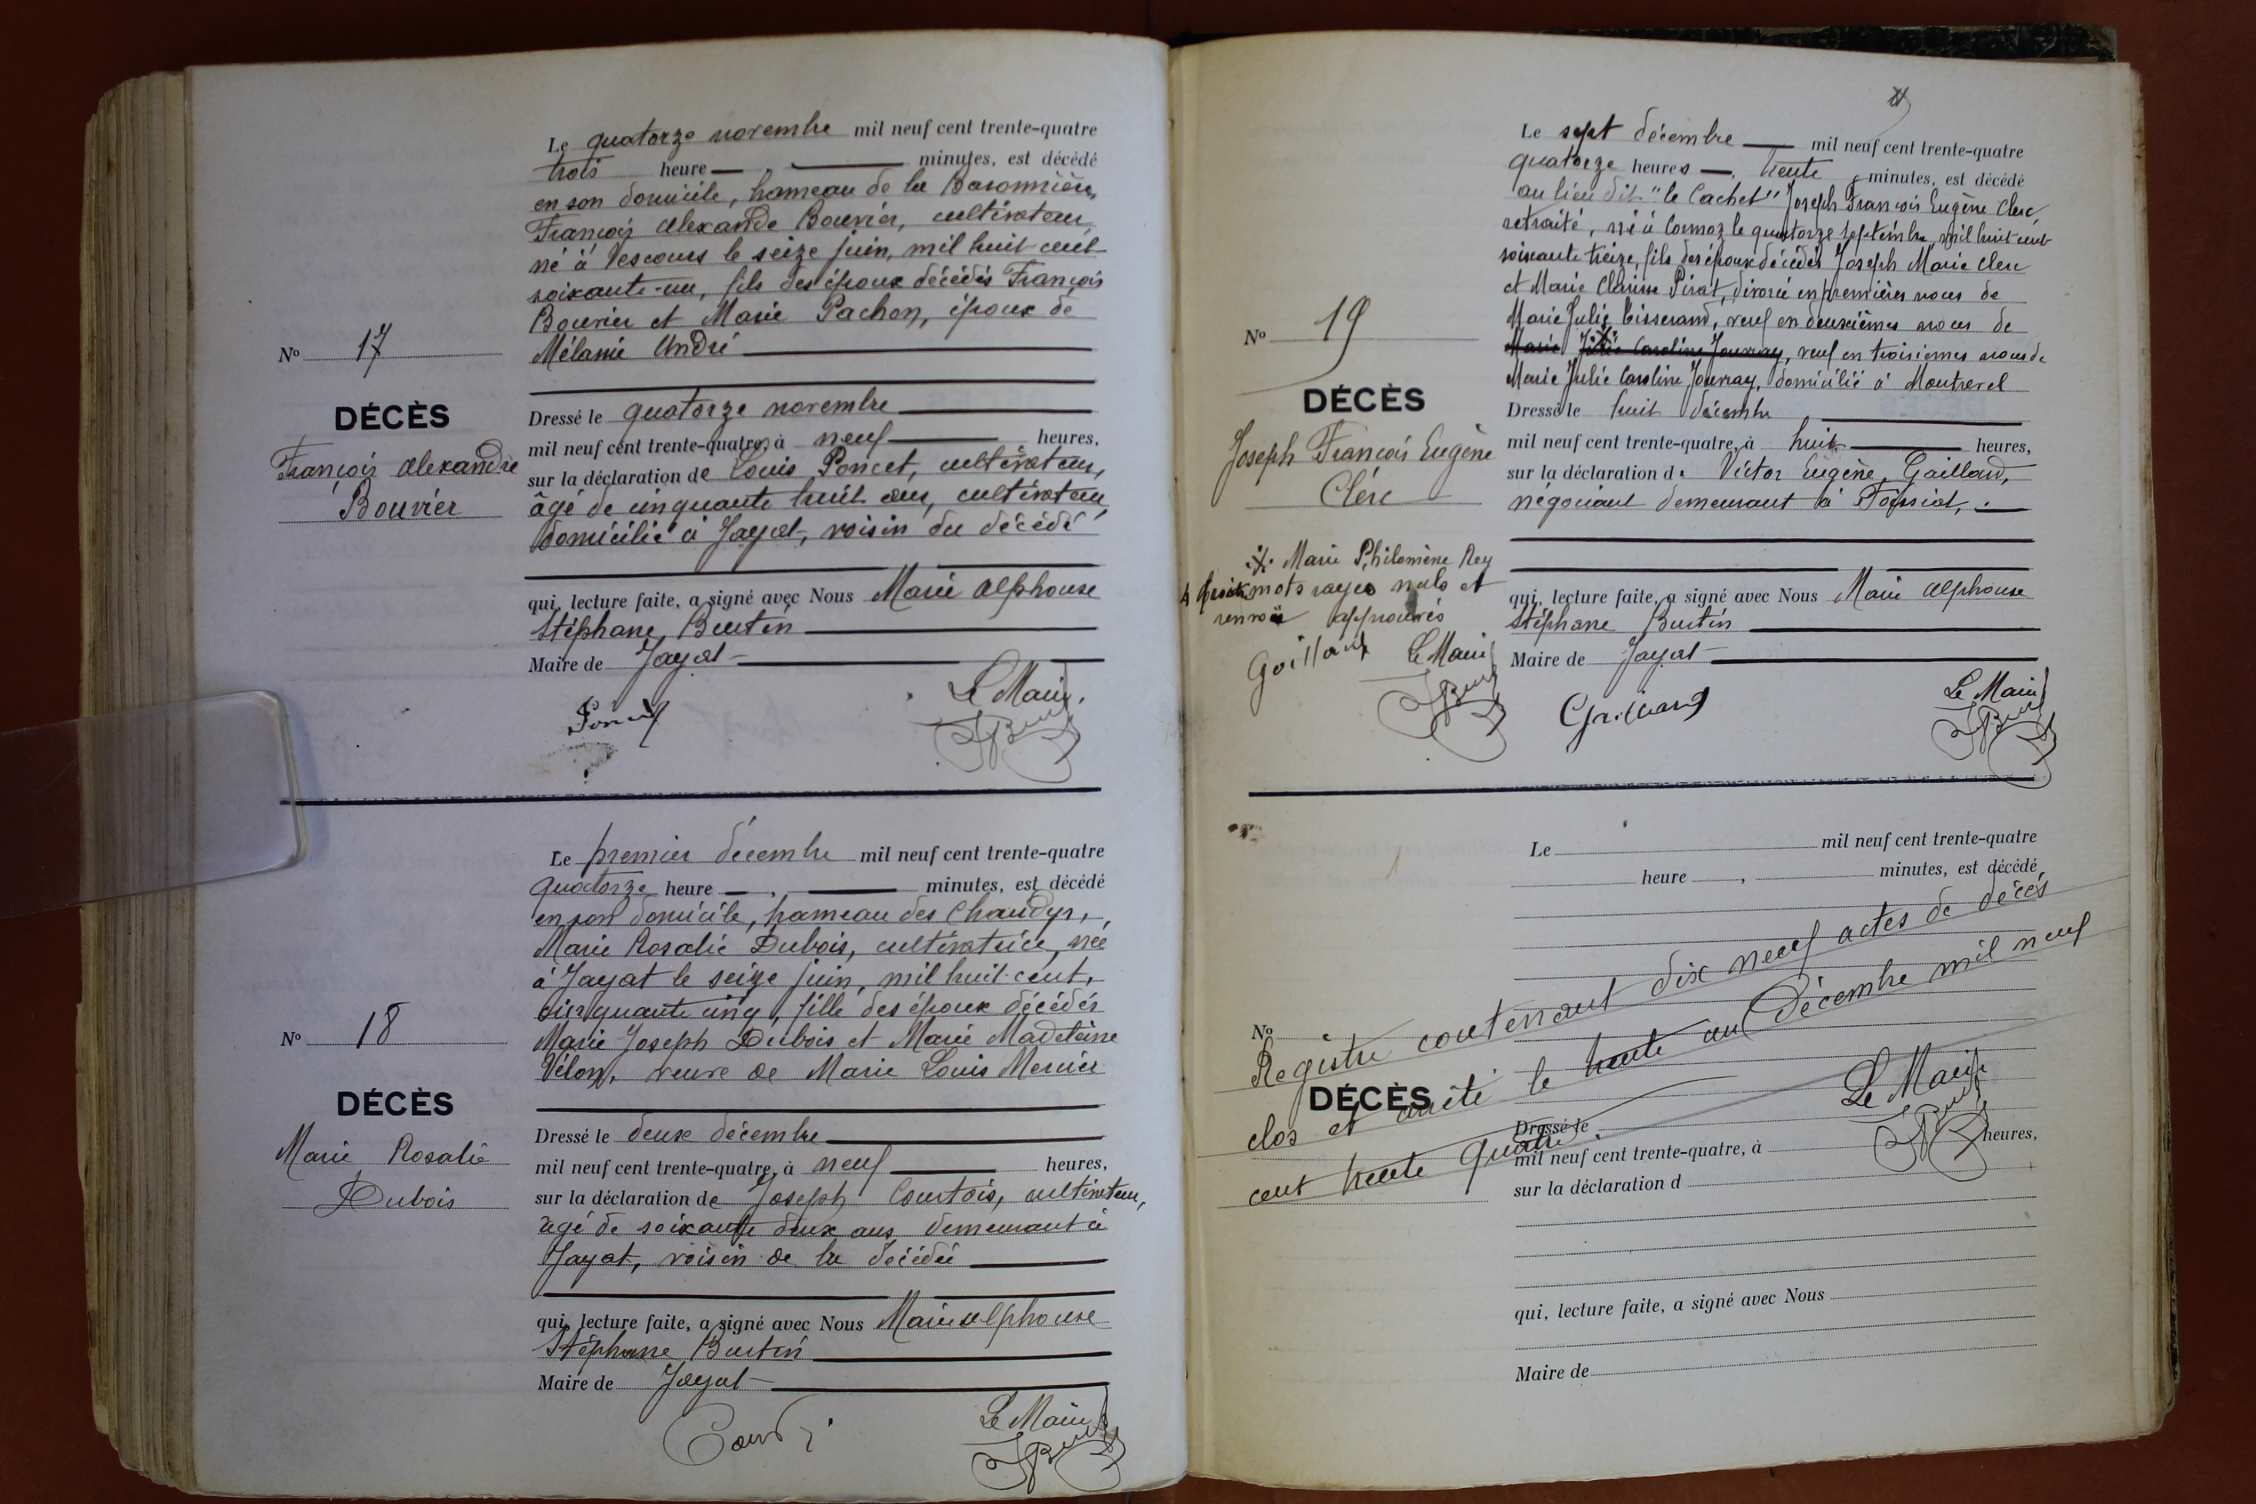 Le quatorze novembre mil neuf cent trente-quatre
trois heure — , — minutes, est décédé
en son domicile, hameau de la Basonnière,
François Alexandre Bouvier, cultivateur,
né à Vescours le seize juin, mil huit cent
soixante-un, fils des époux décédés François
Bouvier et Marie Pachon, époux de
Mélanie André
No 17
DÉCÈS
François Alexandre
Bouvier
Dressé le quatorze novembre
mil neuf cent trente-quatre, à neuf heures,
sur la déclaration de Louis Poncet, cultivateur,
âgé de cinquante huit ans, cultivateur
domicilié à Jayat, voisin du décédé
qui, lecture faite, a signé avec Nous Marie Alphonse
Stéphane Burtin
Maire de Jayat
Poncet
Le Maire
Le premier décembre mil neuf cent trente-quatre
quatorze heure — , — minutes, est décédé
en son domicile, hameau des
Marie Rosalie Dubois, cultivatrice, née
à Jayat le seize juin, mil huit cent,
cinquante cinq, fille des époux décédés
Marie Joseph Dubois et Marie Madeleine
Vélon, veuve de Marie Louis Mercier
No 18
DÉCÈS
Marie Rosalie
Dubois
Dressé le deux décembre
mil neuf cent trente-quatre, à neuf heures,
sur la déclaration de Joseph Courtois, cultivateur,
âgé de soixante deux ans demeurant à
Jayat, voisin de la décédée
qui, lecture faite, a signé avec Nous Marie Alphonse
Stéphane Burtin
Maire de Jayat
Le Maire
Le sept décembre mil neuf cent trente-quatre
quatorze heures — , trente minutes, est décédé
au lieu dit "le Cachet" Joseph François Eugène Clerc,
retraité, né à Cormoz le quatorze septembre mil huit cent
soixante treize, fils des époux décédés Joseph Marie Clerc
et Marie Clarisse Pirat, divorcé en premières noces de
Marie Julie Tisserand, veuf en deuxièmes noces de
Marie Julie Caroline Jouvray, veuf en troisièmes noces de
Marie Julie Caroline Jouvray, domicilié à Montrevel
No 19
DÉCÈS
Joseph François Eugène
Clerc
Marie Philomène Rey
4 mots rayés nuls et
renvoi approuvés
Gaillard Le Maire
Dressé le huit décembre
mil neuf cent trente-quatre, à huit heures,
sur la déclaration de Victor Eugène Gaillard,
négociant demeurant à Foissiat,
qui, lecture faite, a signé avec Nous Marie Alphonse
Stéphane Burtin
Maire de Jayat
Gaillard
Le Maire
Le mil neuf cent trente-quatre
heure , minutes, est décédé
No
DÉCÈS
Registre contenant dix neuf actes de décès
clos et arrêté le trente un Décembre mil neuf
cent trente quatre.
Le Maire
Dressé le
mil neuf cent trente-quatre, à heures,
sur la déclaration d
qui, lecture faite, a signé avec Nous
Maire de